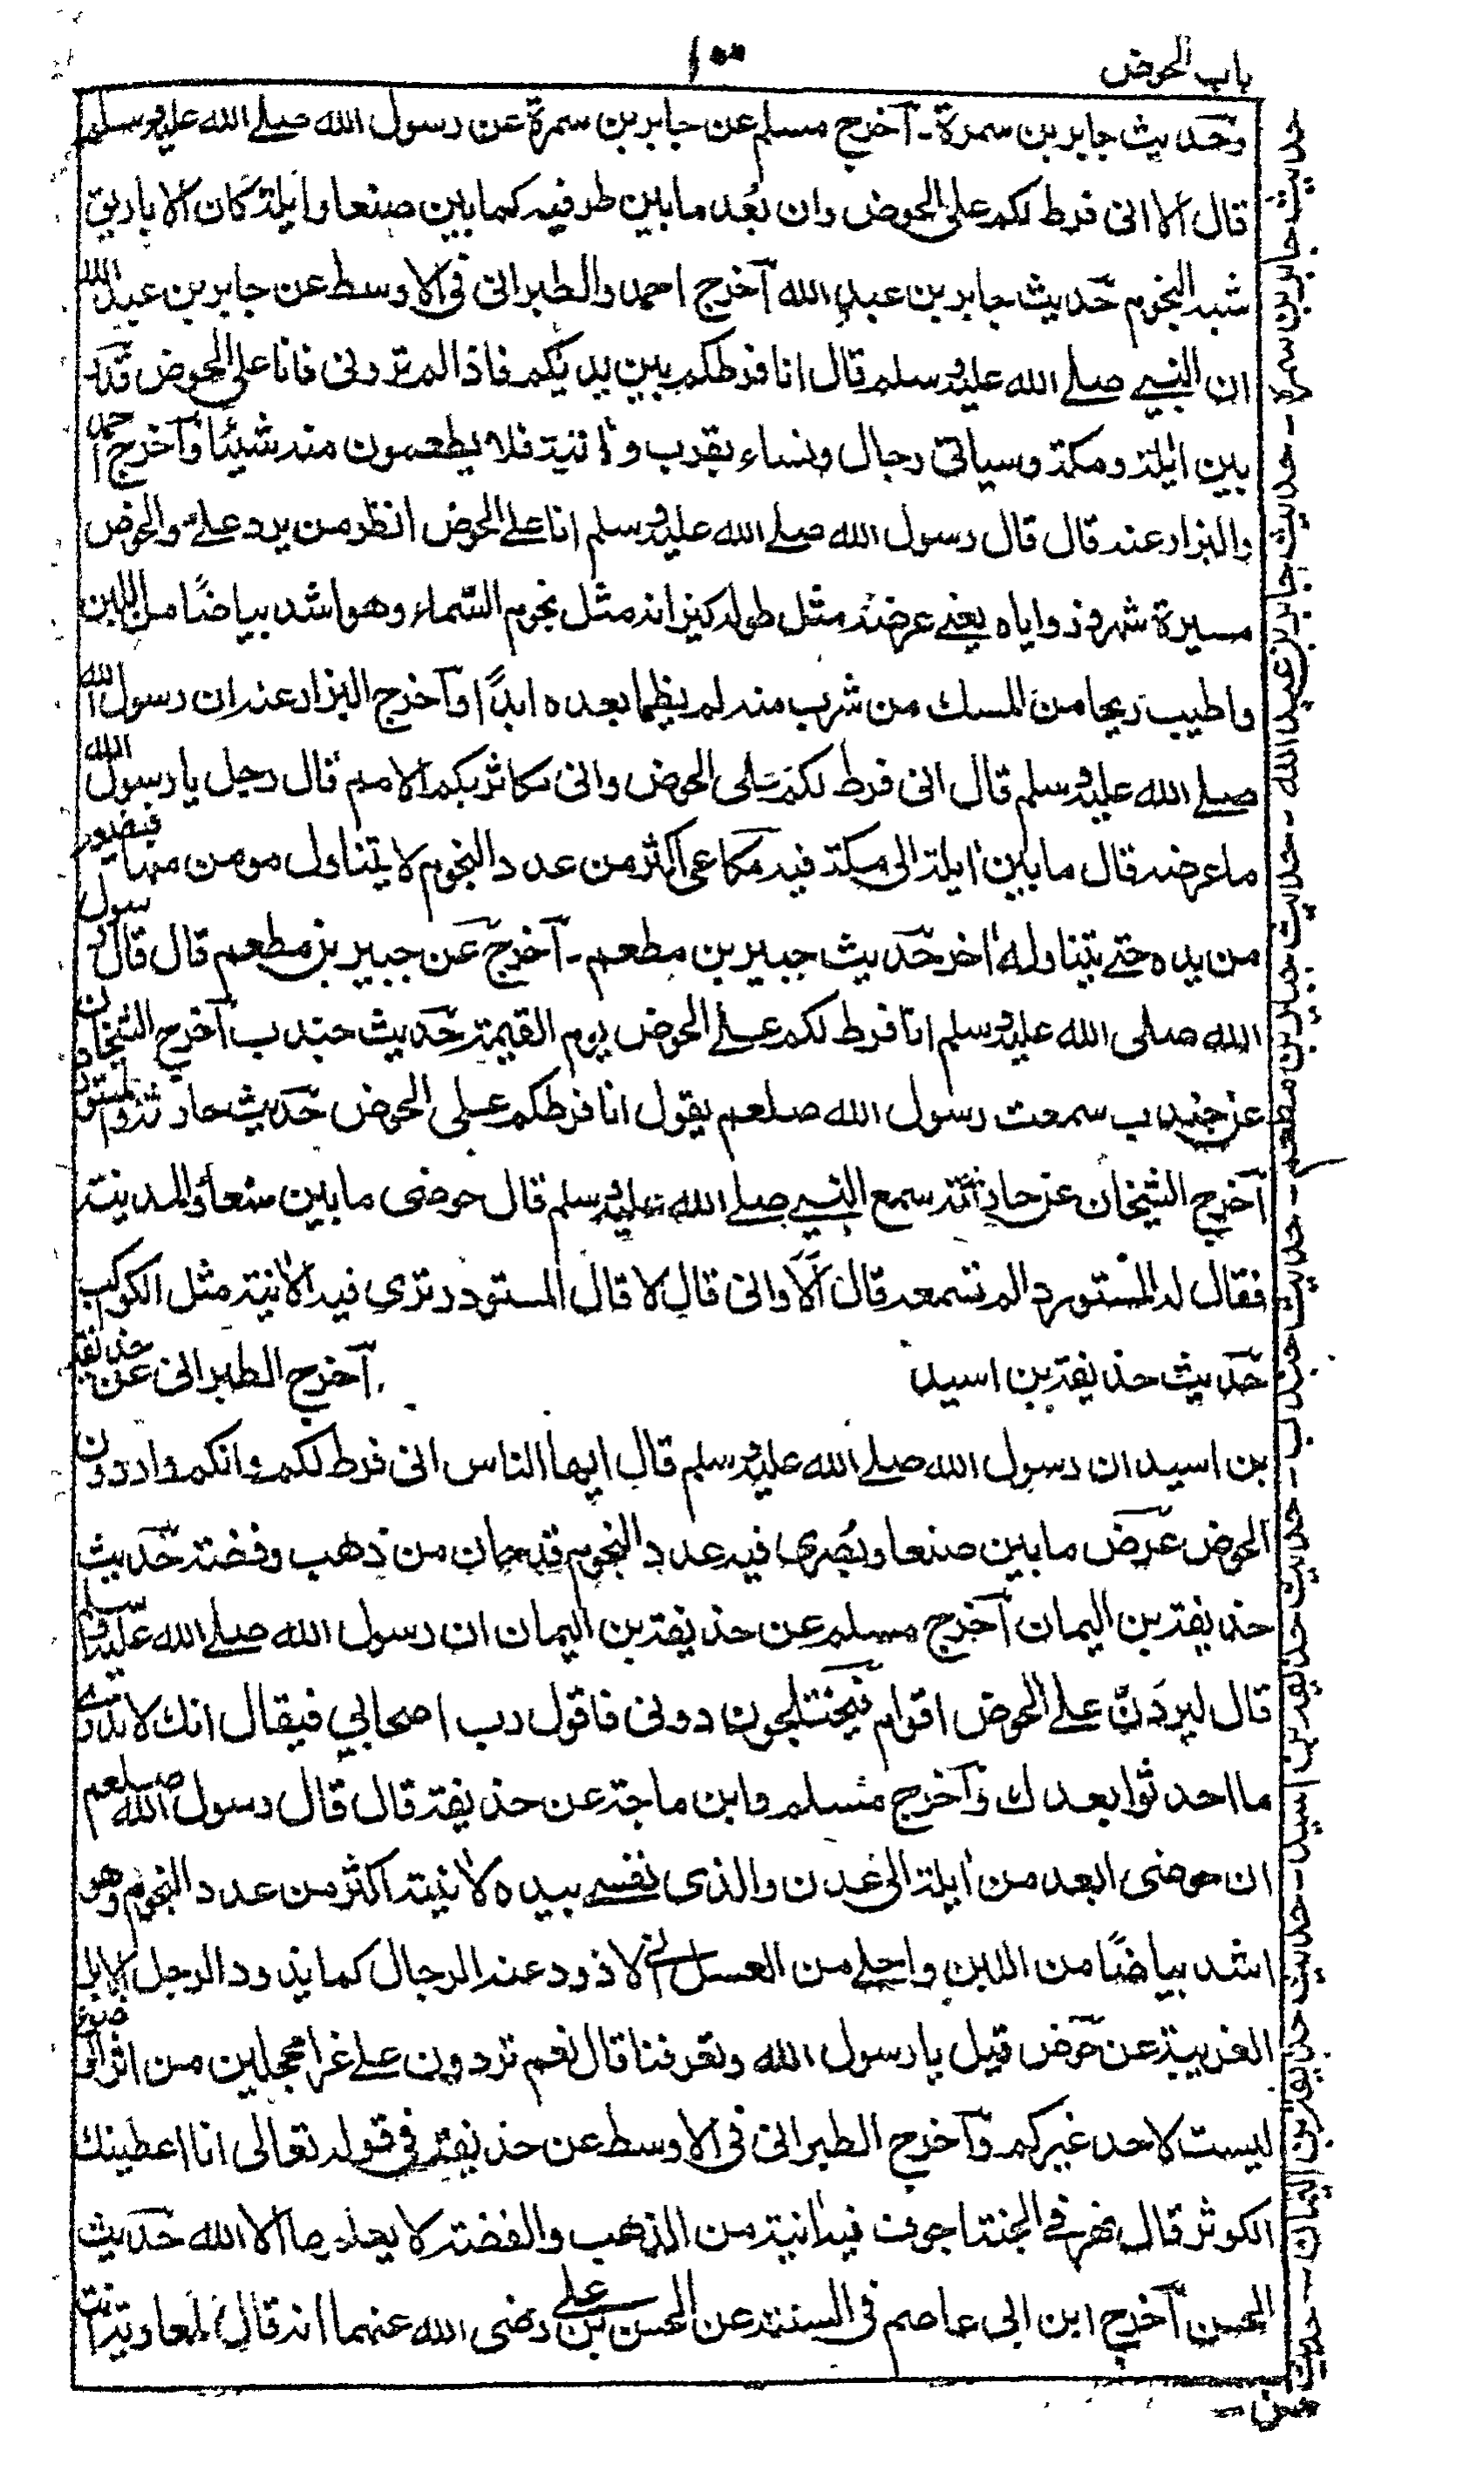 باب الحوض
١٠٠
وحديث جابر بن سمرة۔ آخرج مسلم عن جابر بن سمرة عن رسول الله صلے الله عليه وسلم
قال الا انی فرط لكم علی الحوض وان بُعد ما بين طرفيه كما بين صنعا وايلة كان الاباريق
شبه النجوم حديث جابر بن عبد الله آخرج احمد والطبرانی فی الاوسط عن جابر بن عبد الله
ان النبے صلے الله عليه وسلم قال انا فرطكم بين يديكم فاذا لم ترونی فانا علی الحوض قدر
بين ايلة ومكة وسياتی رجال ونساء بقرب وآنية فلا يطعمون منه شيئا وآخرج احمد
والبزار عنه قال قال رسول الله صلے الله عليه وسلم انا علے الحوض انظر من يرد علے والحوض
مسيرة شهر وزواياه يعنے عرضه مثل طوله كيزانه مثل نجوم السماء وهو اشد بياضًا من اللبن
واطيب ريحا من المسك من شرب منه لم يظما بعده ابدًا وآخرج البزار عنه ان رسول الله
صلے الله عليه وسلم قال انی فرط لكم علی الحوض وانی مكاثر بكم الامم قال رجل يا رسول الله
ما عرضه قال ما بين ايلة الی مكة فيه مكاكی اكثر من عدد النجوم لا يتناول مومن منها فيضعه
من يده حتے يتناوله اخر حديث جبير بن مطعم۔ آخرج عن جبير بن مطعم قال قال رسول
الله صلی الله عليه وسلم انا فرط لكم علے الحوض يوم القيمة حديث جندب آخرج الشيخان
عن جندب سمعت رسول الله صلعم يقول انا فرطكم علی الحوض حديث حارثة والمستورد
آخرج الشيخان عن حارثة سمع النبے صلے الله عليه وسلم قال حوضی ما بين صنعا والمدينة
فقال له المستورد الم تسمعه قال الاوانی قال لا قال المستورد ترى فيه الانية مثل الكوكب
حديث حذيفة بن اسيد آخرج الطبرانی عن حذيفة
بن اسيد ان رسول الله صلے الله عليه وسلم قال ايها الناس انی فرط لكم وانكم واردون
الحوض عرض ما بين صنعا وبُصری فيه عدد النجوم قدحان من ذهب وفضة حديث
حذيفة بن اليمان آخرج مسلم عن حذيفة بن اليمان ان رسول الله صلے الله عليه وسلم
قال ليردنّ علے الحوض اقوام فيختلجون دونی فاقول رب اصحابي فيقال انك لا تدری
ما احدثوا بعدك وآخرج مسلم وابن ماجة عن حذيفة قال قال رسول الله صلعم
ان حوضی ابعد من ايلة الی عدن والذی نفسے بيده لانيته اكثر من عدد النجوم وهو
اشد بياضًا من اللبن واحلے من العسل انی لاذود عنه الرجال كما يذود الرجل الابل
الغريبة عن حوض قيل يا رسول الله وتعرفنا قال نعم تردون علے غرا محجلين من اثر الوضوء
ليست لاحد غيركم وآخرج الطبرانی فی الاوسط عن حذيفة فی قوله تعالی انا اعطينك
الكوثر قال نهر فے الجنة اجوف فيه آنية من الذهب والفضة لا يعلمها الا الله حديث
الحسن آخرج ابن ابی عاصم فی السنة عن الحسن بن علے رضی الله عنهما انه قال لمعاوية انت
حديث جابر بن سمرة ۔ حديث جابر بن عبد الله ۔ حديث جبير بن مطعم ۔ حديث جندب ۔ حديث حذيفة بن اسيد ۔ حديث حذيفة بن اليمان ۔ حديث
حسن ۔